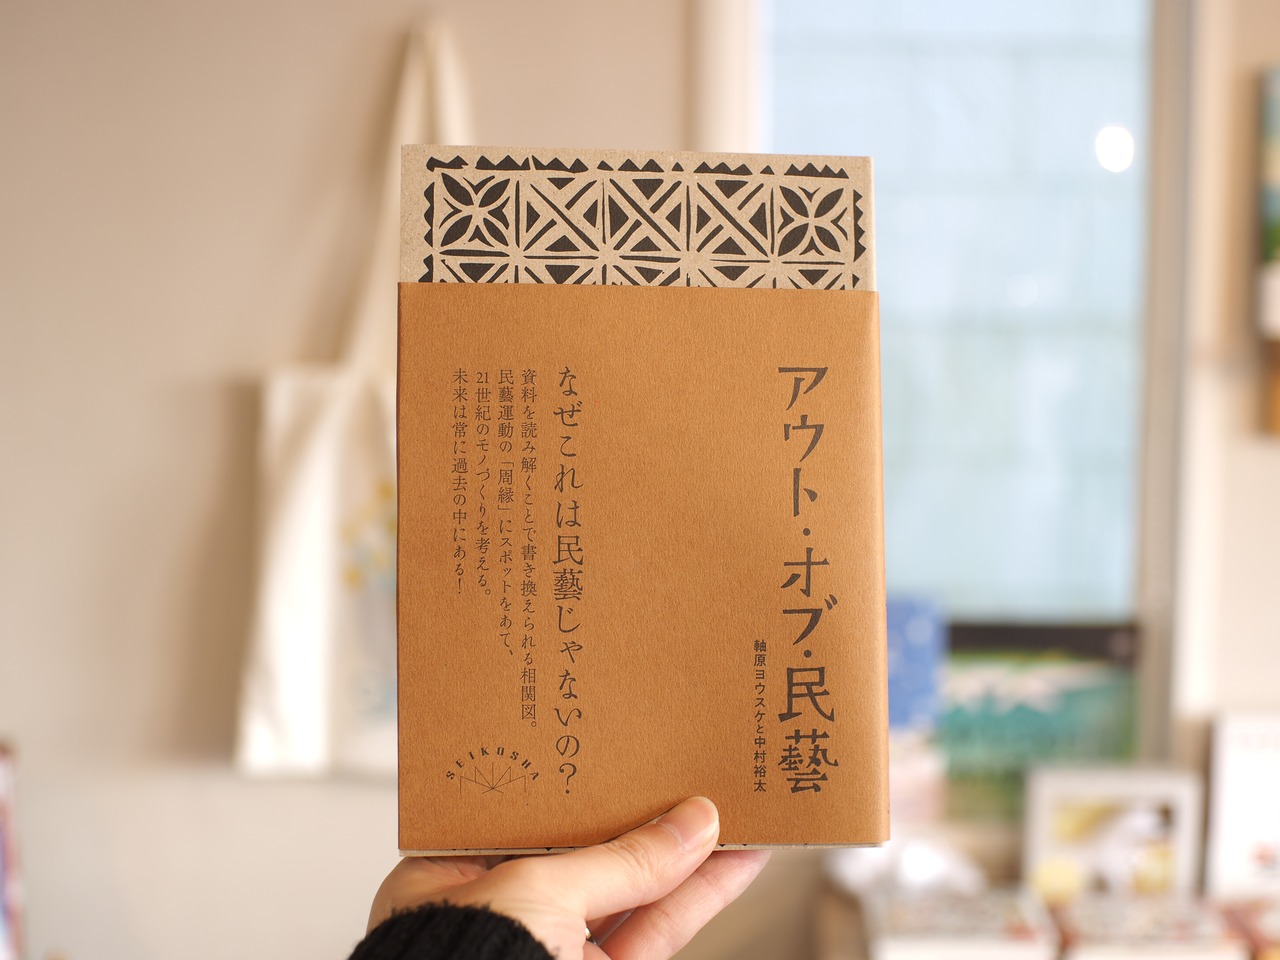 アウト・オブ・民藝
軸原ヨウスケと中村裕太
なぜこれは民藝じゃないの？
資料を読み解くことで書き換えられる相関図。
民藝運動の「周縁」にスポットをあて、
21世紀のモノづくりを考える。
未来は常に過去の中にある！
SEIKOSHA